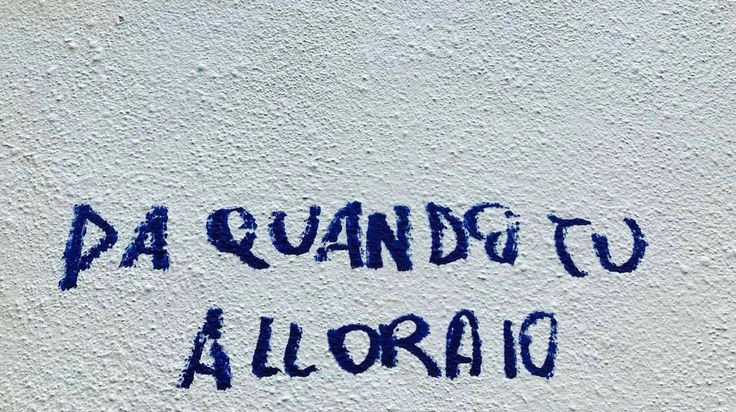 DA QUANDO TU
ALLORA IO